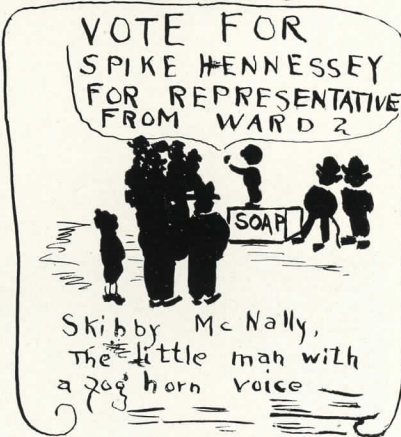 VOTE FOR
SPIKE HENNESSEY
FOR REPRESENTATIVE
FROM WARD 2
SOAP
Skibby McNally,
The little man with
a fog horn voice